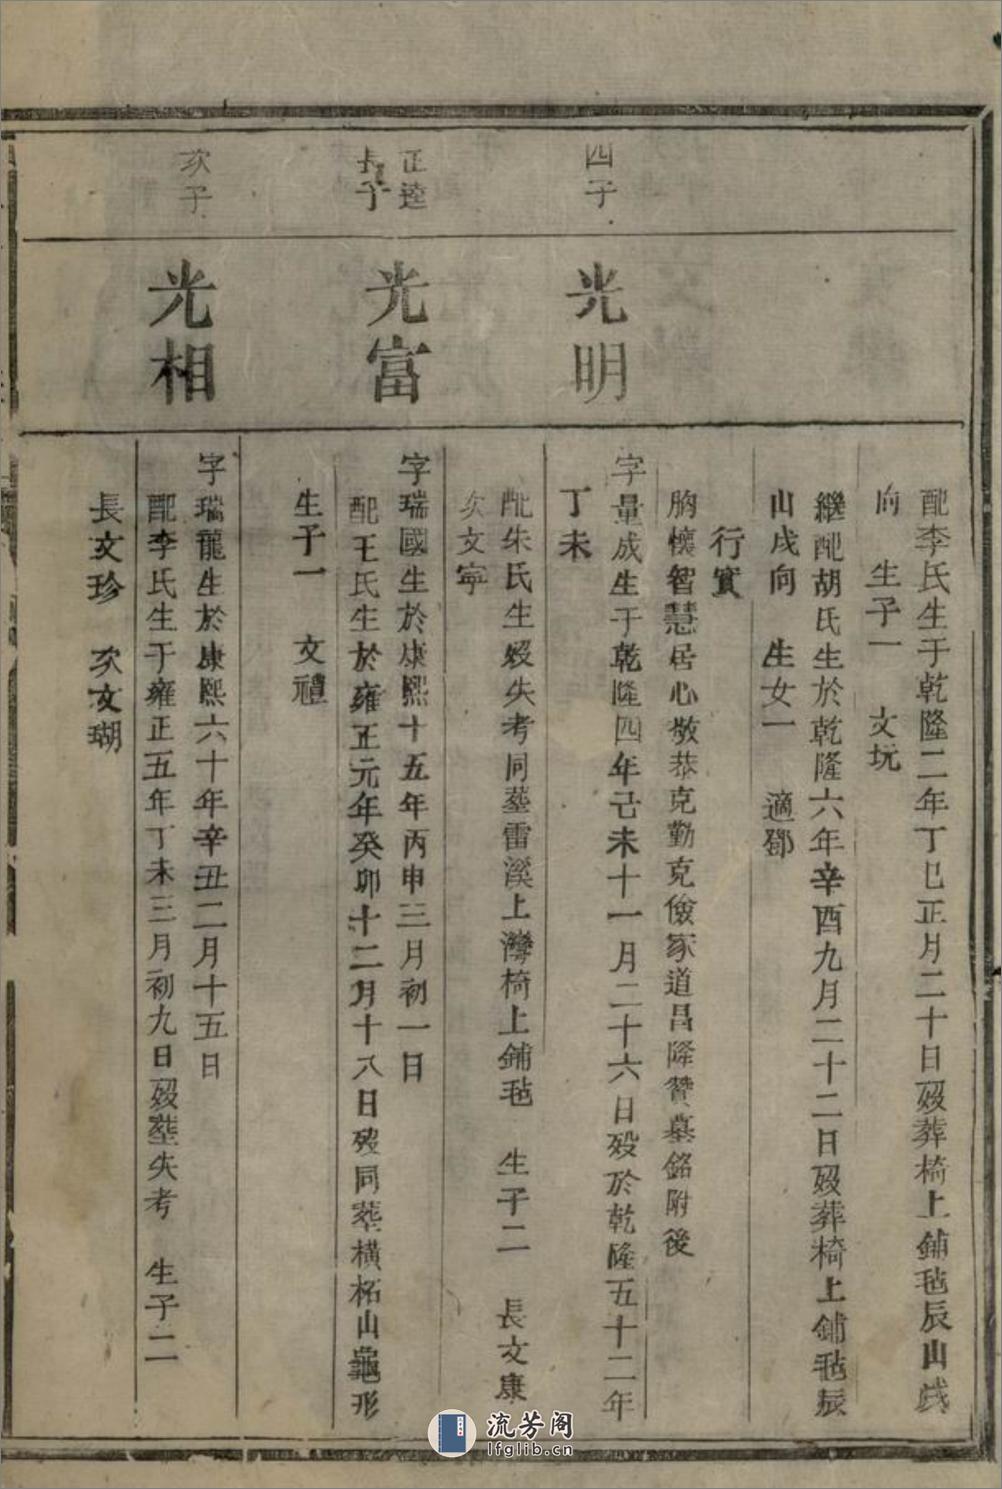 配李氏生于乾隆二年丁巳正月二十日殁葬椅上鋪毡辰山戌
向　生子一　文玩
繼配胡氏生於乾隆六年辛酉九月二十二日殁葬椅上鋪毡辰
山戌向　生女一　適鄧
行實
胸懷智慧居心敬恭克勤克儉家道昌隆贊墓銘附後
四子
光明
字量成生于乾隆四年己未十一月二十六日殁於乾隆五十二年
丁未
配朱氏生殁失考同塟雷溪上灣椅上鋪毡　生子二　長文康
次文寧
正逵
長子
光富
字瑞國生於康熙十五年丙申三月初一日
配王氏生於雍正元年癸卯十二月十八日殁同塟橫柘山龜形
生子一　文禮
次子
光相
字瑞龍生於康熙六十年辛丑二月十五日
配李氏生于雍正五年丁未三月初九日殁塟失考　生子二
長文珍　次文瑚
流芳阁
lfglib.cn